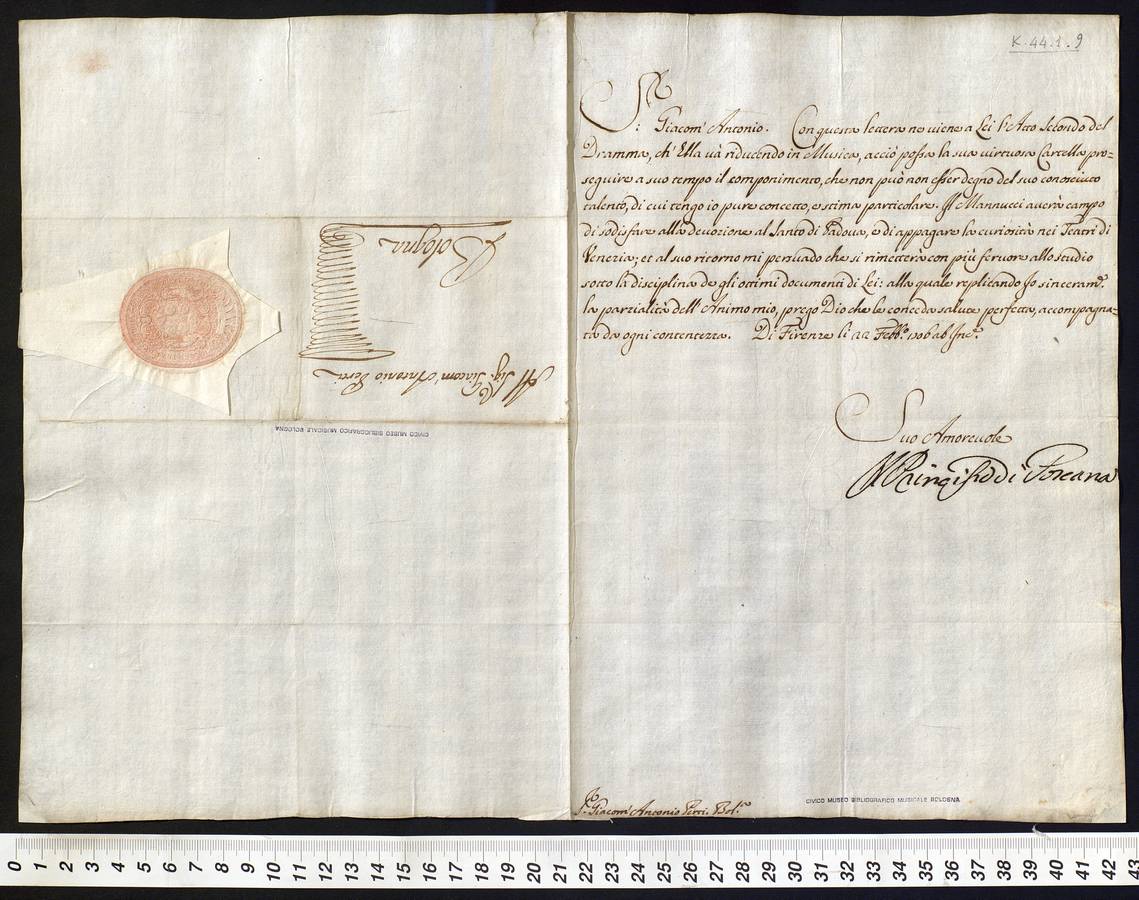 K.44.1.9
Sr: Giacom' Antonio. Con questa lettera ne viene a Lei l'Atto Secondo del
Dramma, ch'Ella và riducendo in Musica, acciò possa la sua virtuosa Cartella pro=
seguire a suo tempo il componimento, che non può non esser degno del suo conosciuto
talento, di cui tengo io pure concetto, e stima particolare. Il Mannucci averà campo
di sodisfare alla devozione al Santo di Padova, e di appagare la curiosità nei Teatri di
Venezia; et al suo ritorno mi persuado che si rimetterà con più fervore allo studio
sotto la disciplina de gli ottimi documenti di Lei: alla quale replicando Io sinceram.e
la parzialità dell'Animo mio, prego Dio che le conceda salute perfetta, accompagna=
ta da ogni contentezza. Di Firenze li 22 Febb.o 1706 ab Inc.e
Suo Amorevole
Il Principe di Toscana
Sr. Giacom' Antonio Perti. Bol.a
CIVICO MUSEO BIBLIOGRAFICO MUSICALE BOLOGNA
Al Sig.r Giacom' Antonio Perti
Bologna
CIVICO MUSEO BIBLIOGRAFICO MUSICALE BOLOGNA
0 1 2 3 4 5 6 7 8 9 10 11 12 13 14 15 16 17 18 19 20 21 22 23 24 25 26 27 28 29 30 31 32 33 34 35 36 37 38 39 40 41 42 43